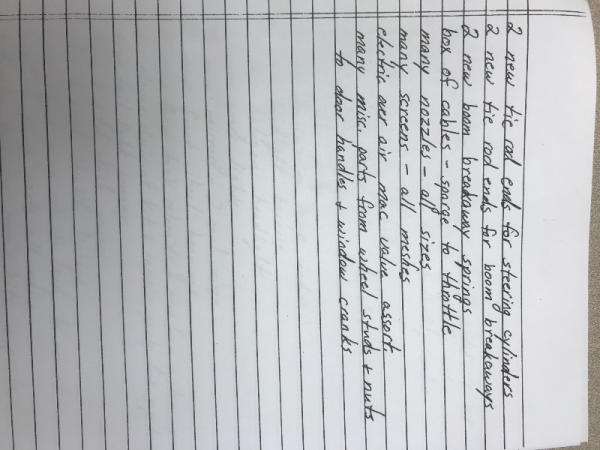 2 new tie rod ends for steering cylinders
2 new tie rod ends for boom breakaways
2 new boom breakaway springs
box of cables - sparge to throttle
many nozzles - all sizes
many screens - all meshes
electric over air mac valve assort.
many misc. parts from wheel studs & nuts
to door handles & window cranks